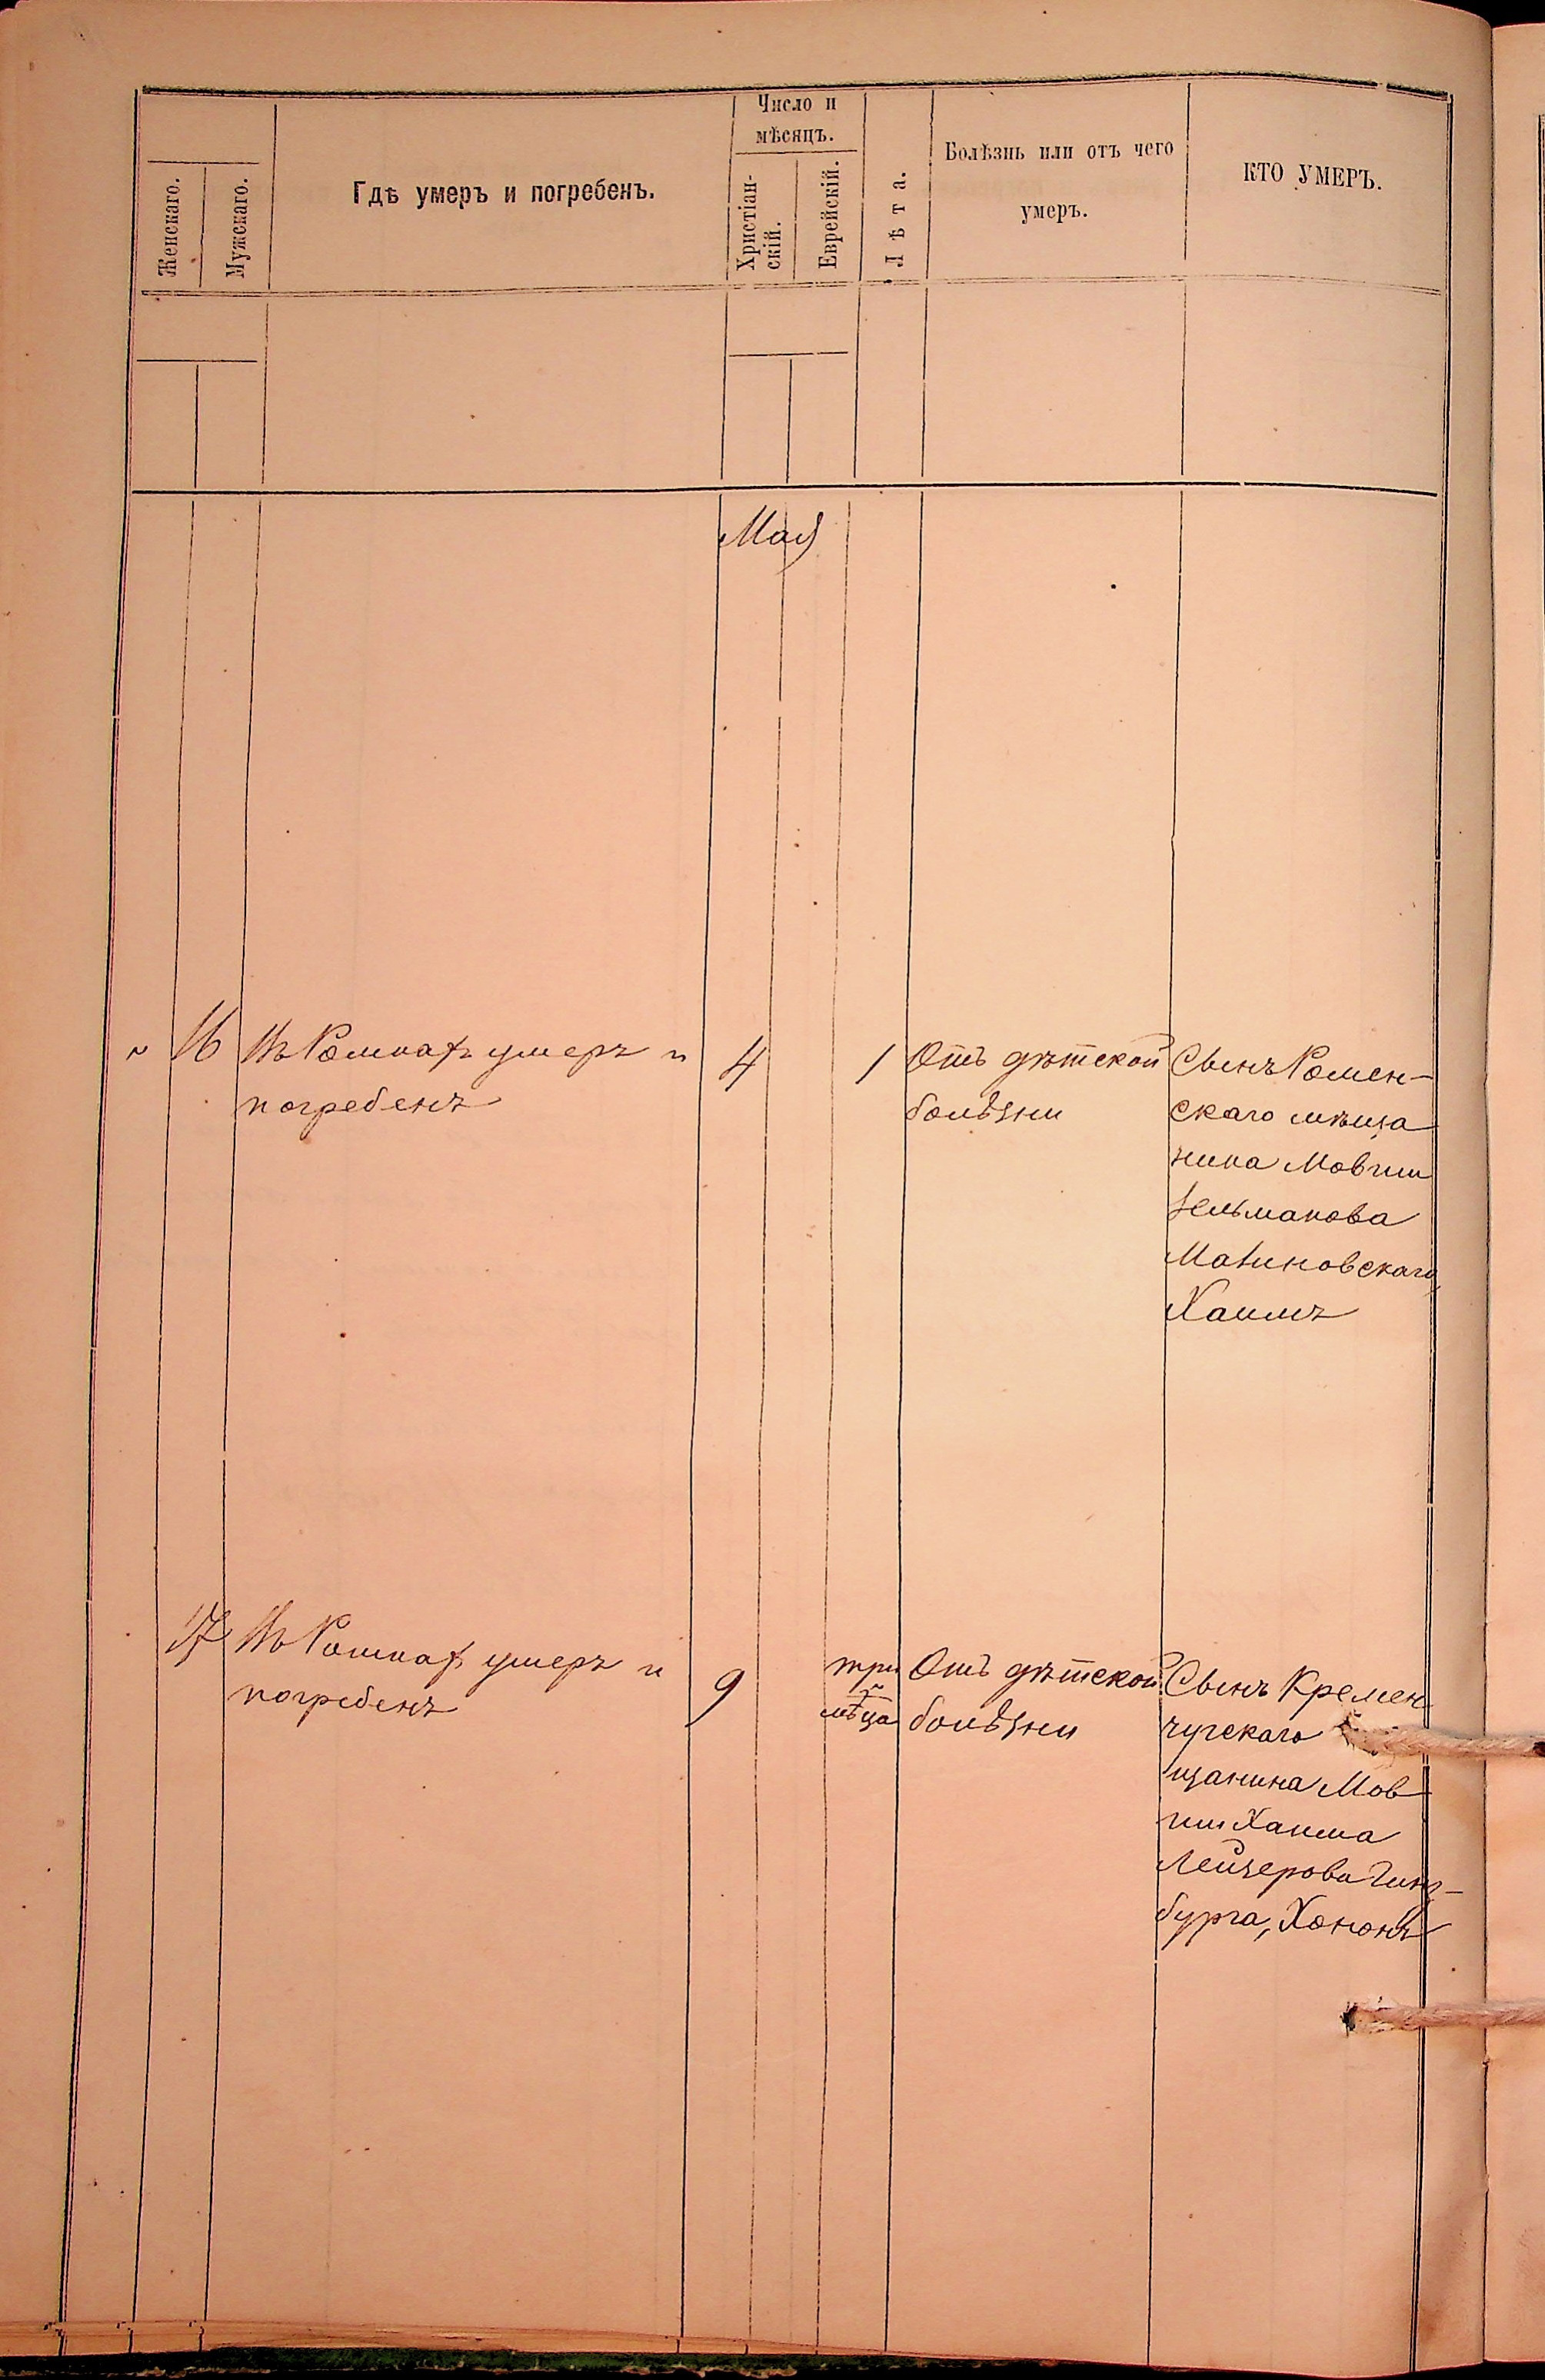 Женскаго.
Мужскаго.
Гдѣ умеръ и погребенъ.
Число и
мѣсяцъ.
Христіан-
скій.
Еврейскій.
Лѣта.
Болѣзнь или отъ чего
умеръ.
КТО УМЕРЪ.
Мая
16
Въ Ромнахъ умеръ и
погребенъ
4
1
Отъ дѣтской
болѣзни
Сынъ Ромен-
скаго мѣща
нина Мовши
Зельманова
Малиновскаго
Хаимъ
17
Въ Ромнахъ умеръ и
погребенъ
9
три
мѣца
Отъ дѣтской
болѣзни
Сынъ Кремен
чугскаго
щанина Мов
ши Хаима
Лейзерова Гинз-
бурга, Хононъ